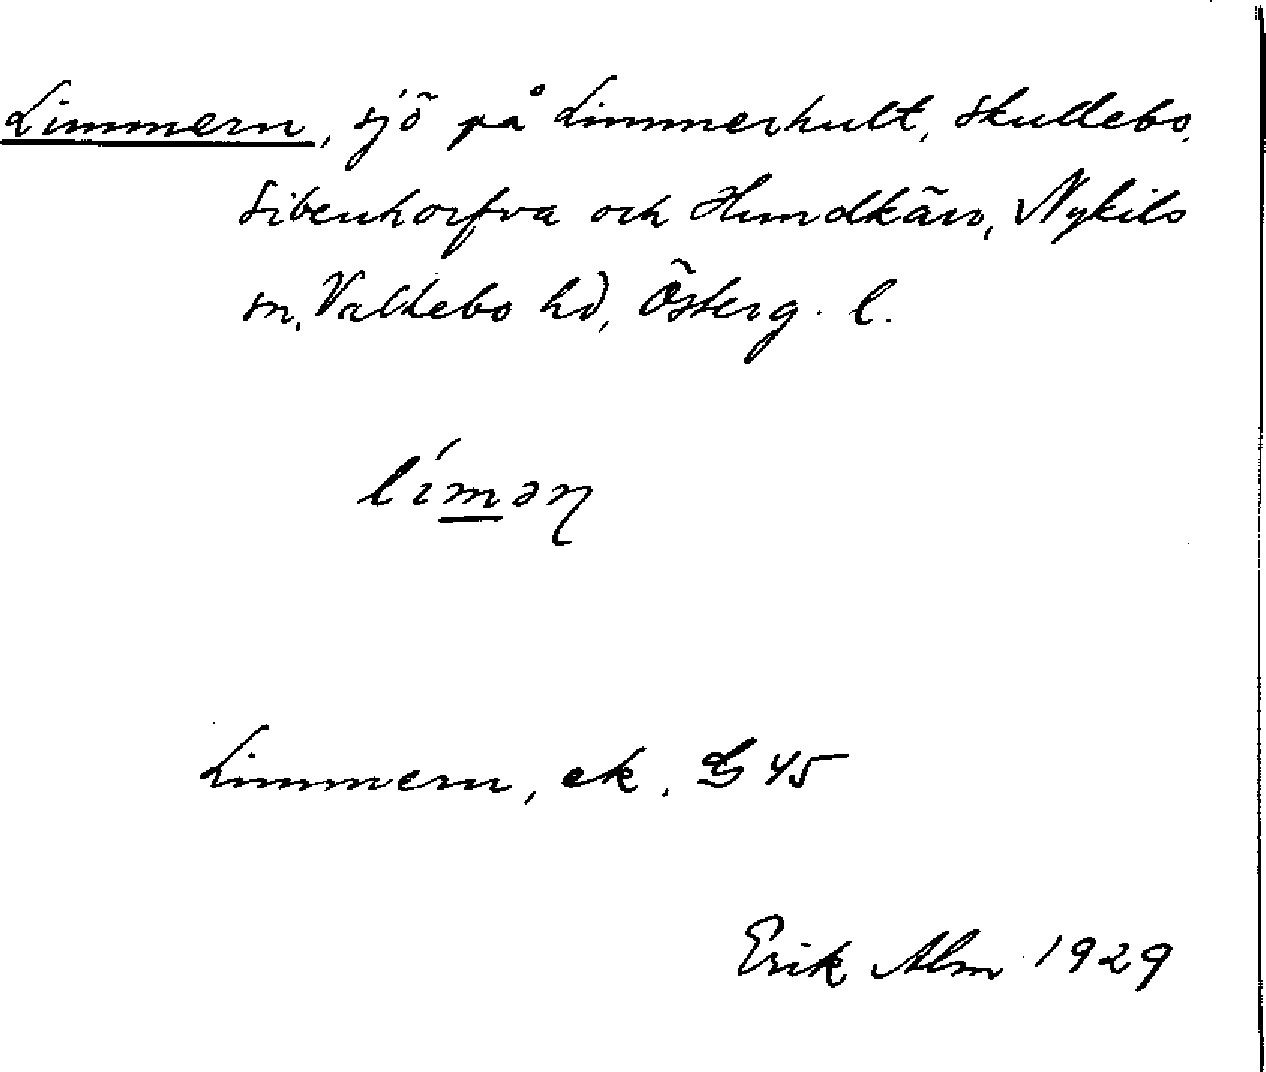 Limmern, sjö på Limmerhult, Skullebo,
Sibenhorfva och Hundkärr, Nykils
sn, Valkebo hd, Österg. l.
límaɳ
Limmern, ek. L 45
Erik Alm 1929